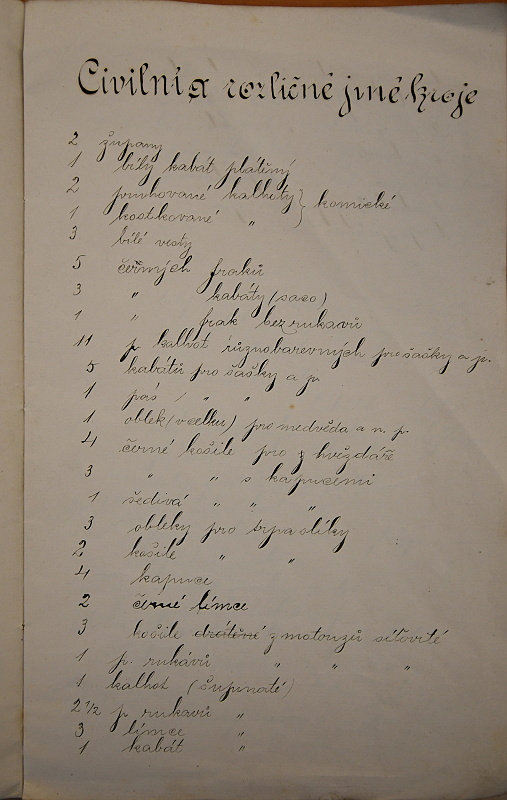 Civilní a rozličné jiné kroje
2 župany
1 bílý kabát plátěný
2 pruhované kalhoty } komické
1 kostkované "
3 bílé vesty
5 černých fraků
3 " kabáty (saco)
1 " frak bez rukavů
11 p. kalhot různobarevných pro šašky a p.
5 kabátů pro šašky a p.
1 pás / " "
1 oblek (v celku) pro medvěda a n. p.
4 černé košile pro hvězdáře
3 " " s kapucemi
1 šedivá " " "
3 obleky pro trpaslíky
2 košile " "
4 kapuce
2 černé límce
3 košile drátěné z motouzů síťovité
1 p. rukávů " " "
1 kalhot (šupnaté)
2 1/2 p rukavů "
3 límce "
1 kabát "